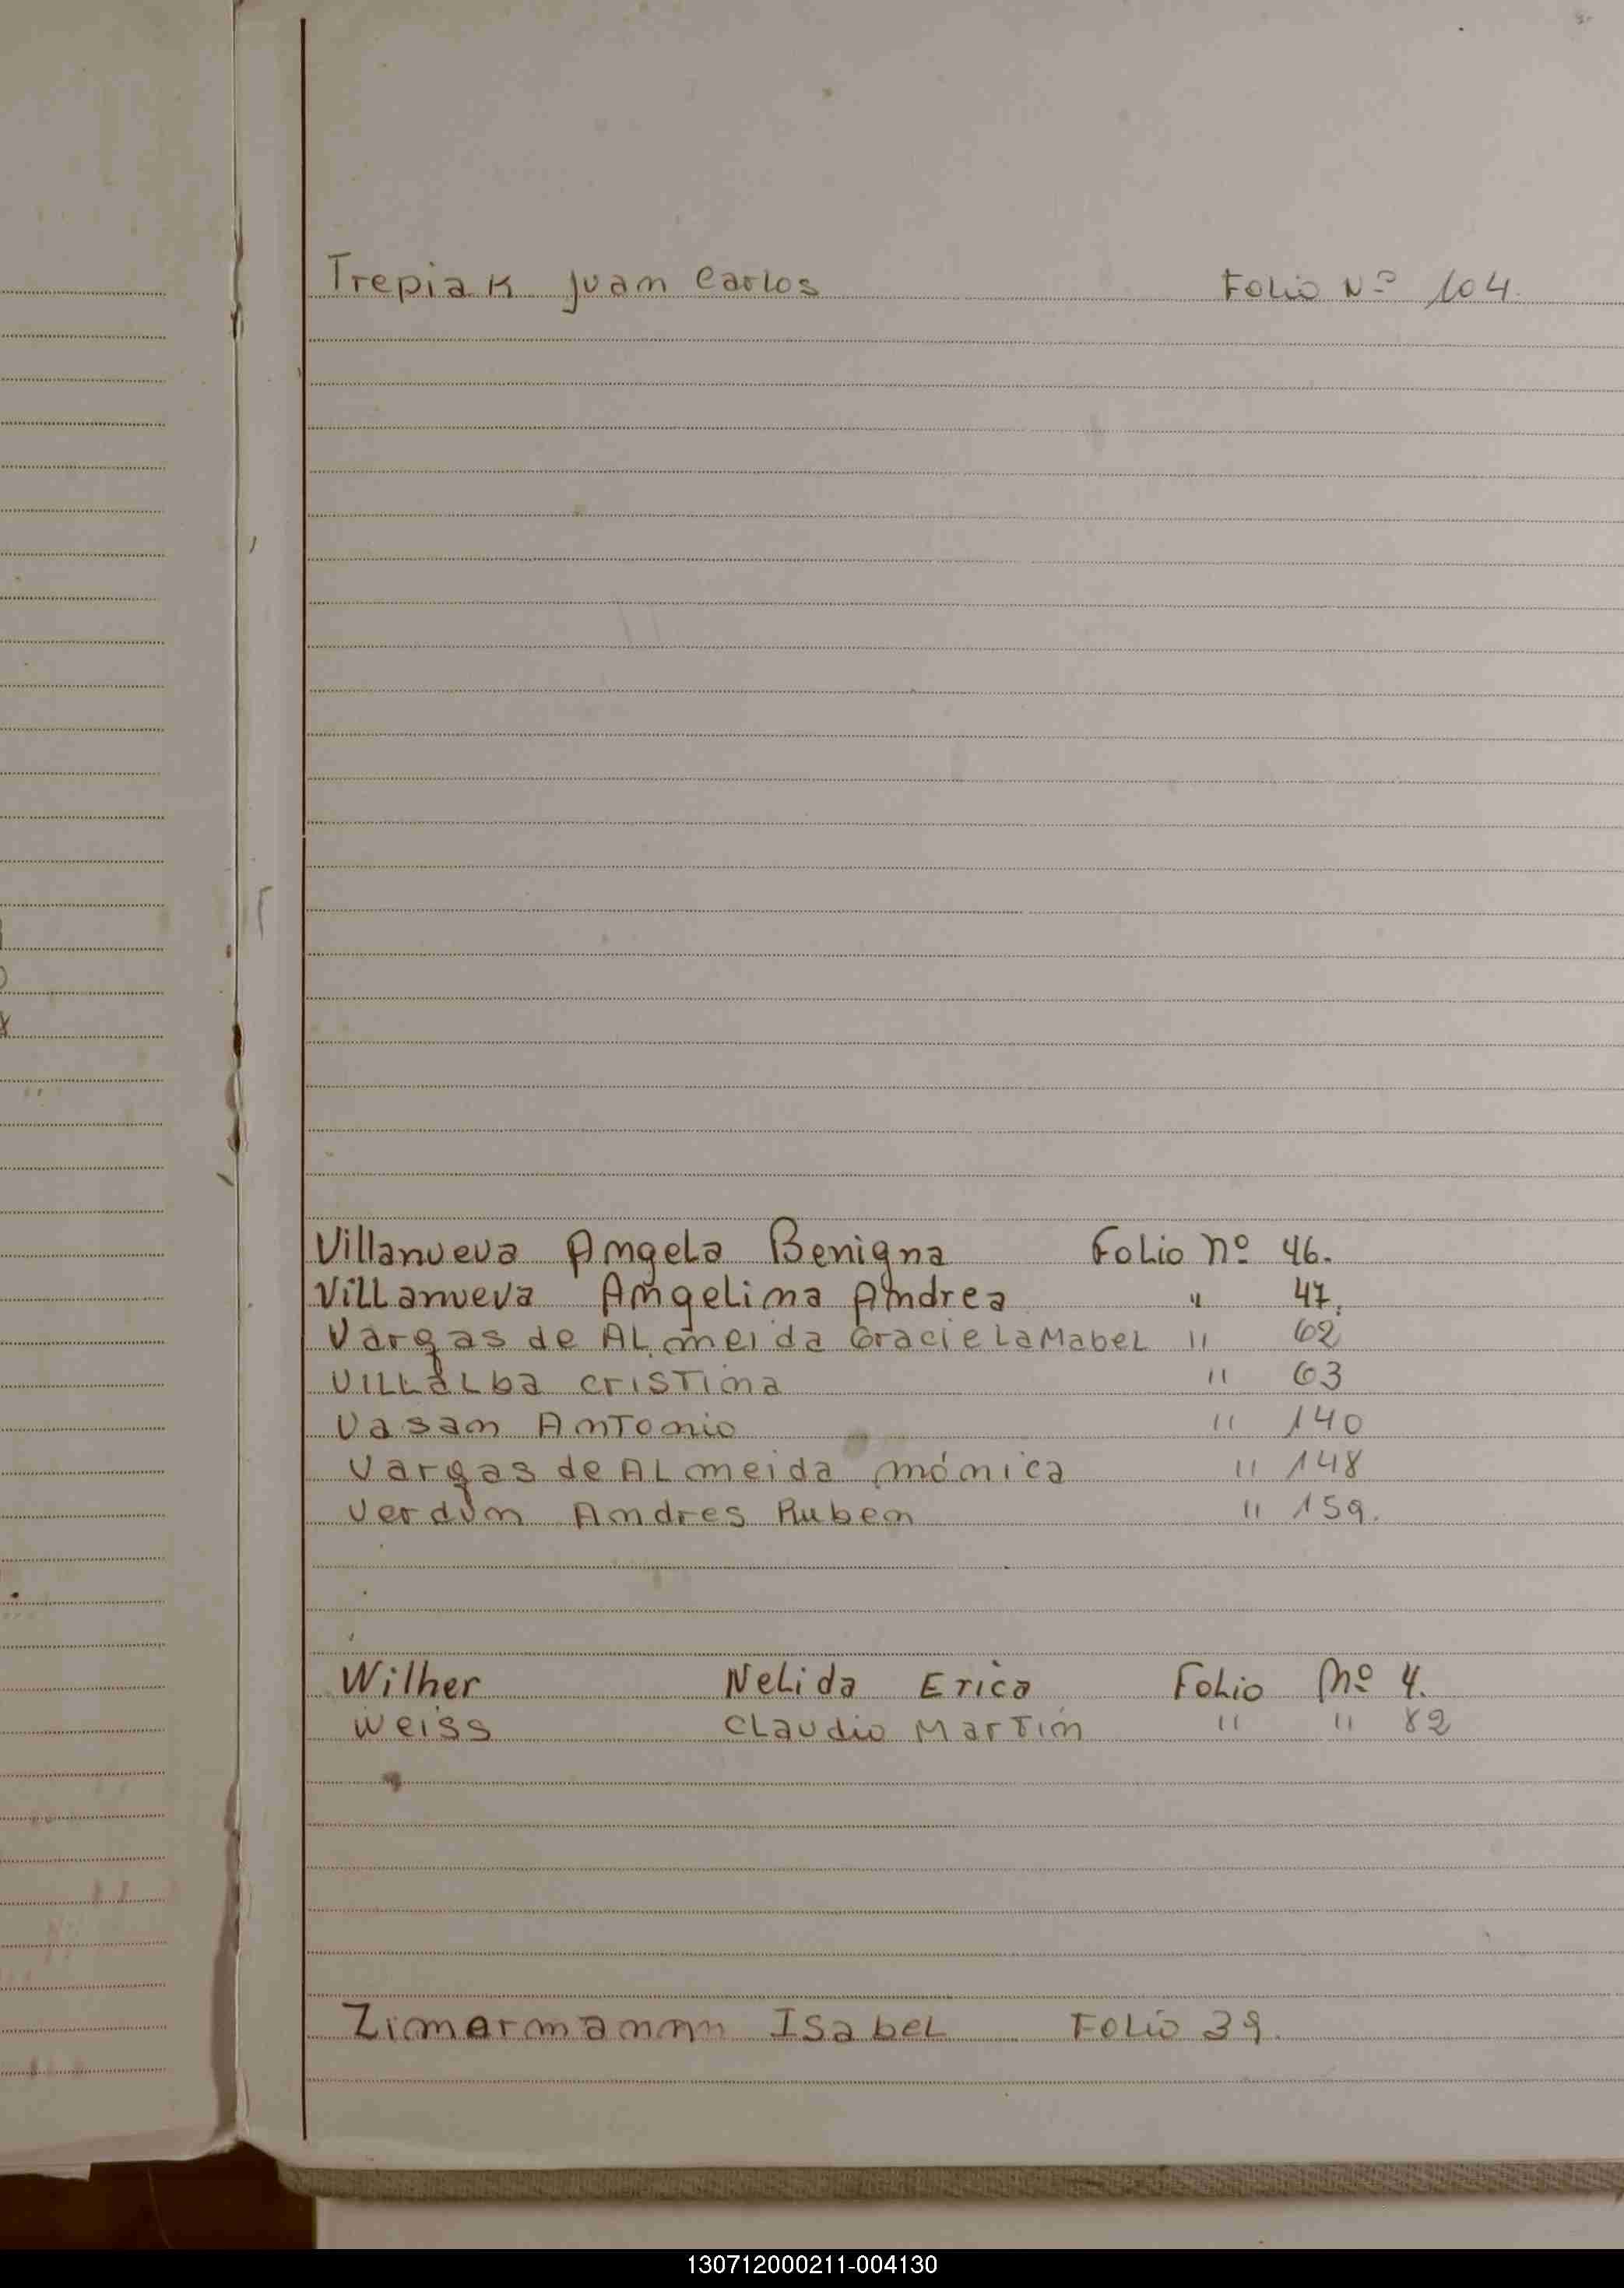 Trepiak Juan Carlos Folio Nº 104.
Villanueva Angela Benigna Folio nº 46.
Villanueva Angelina Andrea " 47.
Vargas de Almeida Graciela Mabel " 62
Villalba Cristina " 63
Vasan Antonio " 140
Vargas de Almeida Mónica " 148
Verdún Andres Ruben " 159.
Wilher Nelida Erica Folio Nº 4.
Weiss Claudio Martín " " 82
Zimermannn Isabel Folio 39.
130712000211-004130